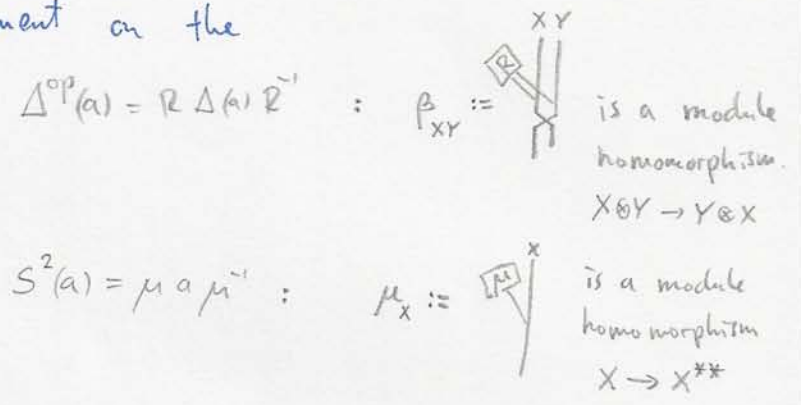 ment on the
X Y
Δ^op(a) = R Δ(a) R^-1 : β_XY := R is a module
homomorphism.
X⊗Y → Y⊗X
S^2(a) = μ a μ^-1 : μ_X := μ X is a module
homomorphism
X → X**